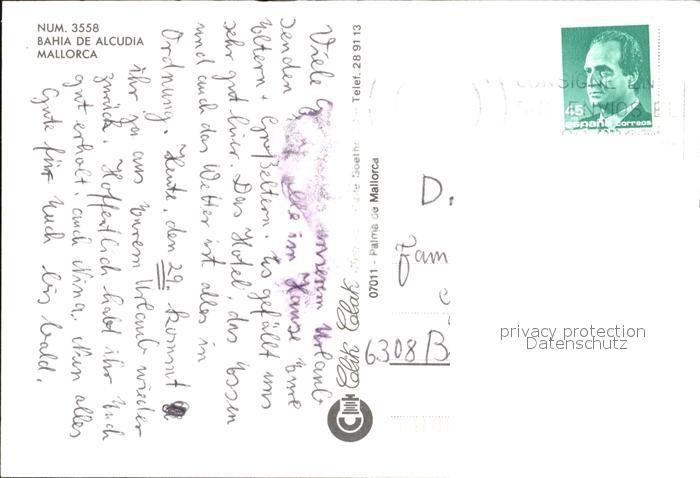 NUM. 3558
BAHIA DE ALCUDIA
MALLORCA
Viele unserem Urlaub
senden alle im Hause Eure
Eltern + Großeltern. Es gefällt uns
sehr gut hier. Das Hotel, das Essen
und auch das Wetter ist alles in
Ordnung. Heute, den 29. kommt
ihr ja aus Eurem Urlaub wieder
zurück. Hoffentlich habt ihr Euch
gut erholt, auch Nina. Nun alles
Gute für Euch bis bald.
Telef. 28 91 13
07011 - Palma de Mallorca
CONSIGNE EN
SUS ENVIOS EL
45
españa correos
D.
Fam
6308 B
privacy protection
Datenschutz